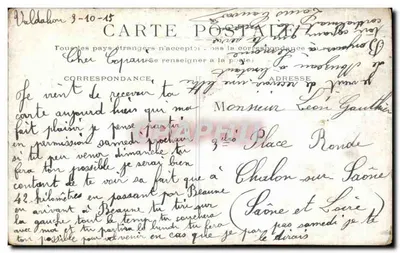 Valdahon 3-10-15
CARTE POSTALE
Tous les pays étrangers n'acceptent pas la correspondance
se renseigner à la poste
CORRESPONDANCE
ADRESSE
Cher Copain
Je vient de recevoir ta
carte aujourd huis qui ma
fait plaisir je pense partir
en permission samedi prochain
si tu peu venir dimanche tu
fera ton possible je serai bien
contant de te voir sa fait que à
42 kilomètres en passant par Beaune
en arrivant à Beaune tu tire sur
la gauche tout le temp tu couchera
avec moi et tu partira le lundi tu fera
ton possible pour venir en cas que je par pas samedi je te
le dirais
Monsieur Léon Gauthier
3 Place Ronde
Chalon sur Saône
(Saône et Loire)
Je vient de recevoir une lettre